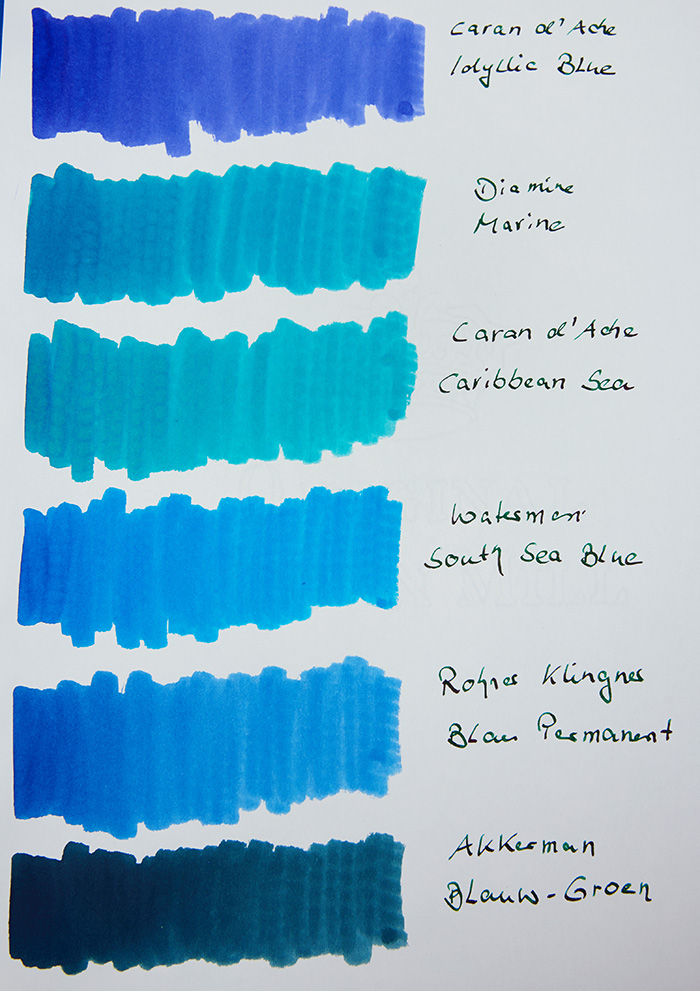 Caran d'Ache
Idyllic Blue
Diamine
Marine
Caran d'Ache
Caribbean Sea
Waterman
South Sea Blue
Rohrer Klingner
Blau Permanent
Akkerman
Blauw-Groen